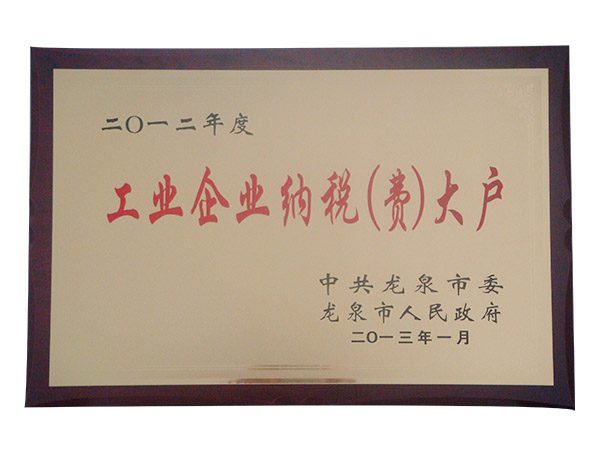 二〇一二年度
工业企业纳税(费)大户
中共龙泉市委
龙泉市人民政府
二〇一三年一月